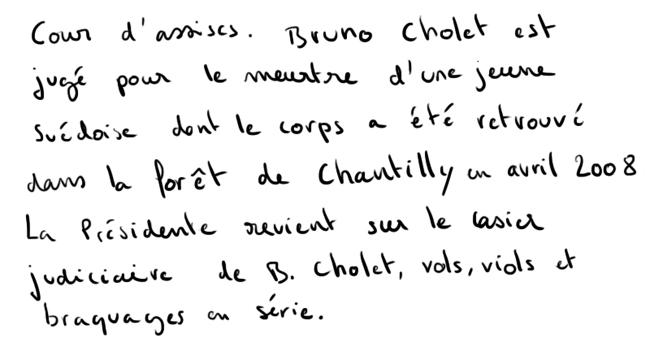 Cour d'assises. Bruno Cholet est
jugé pour le meurtre d'une jeune
suédoise dont le corps a été retrouvé
dans la forêt de Chantilly en avril 2008
La Présidente revient sur le casier
judiciaire de B. Cholet, vols, viols et
braquages en série.